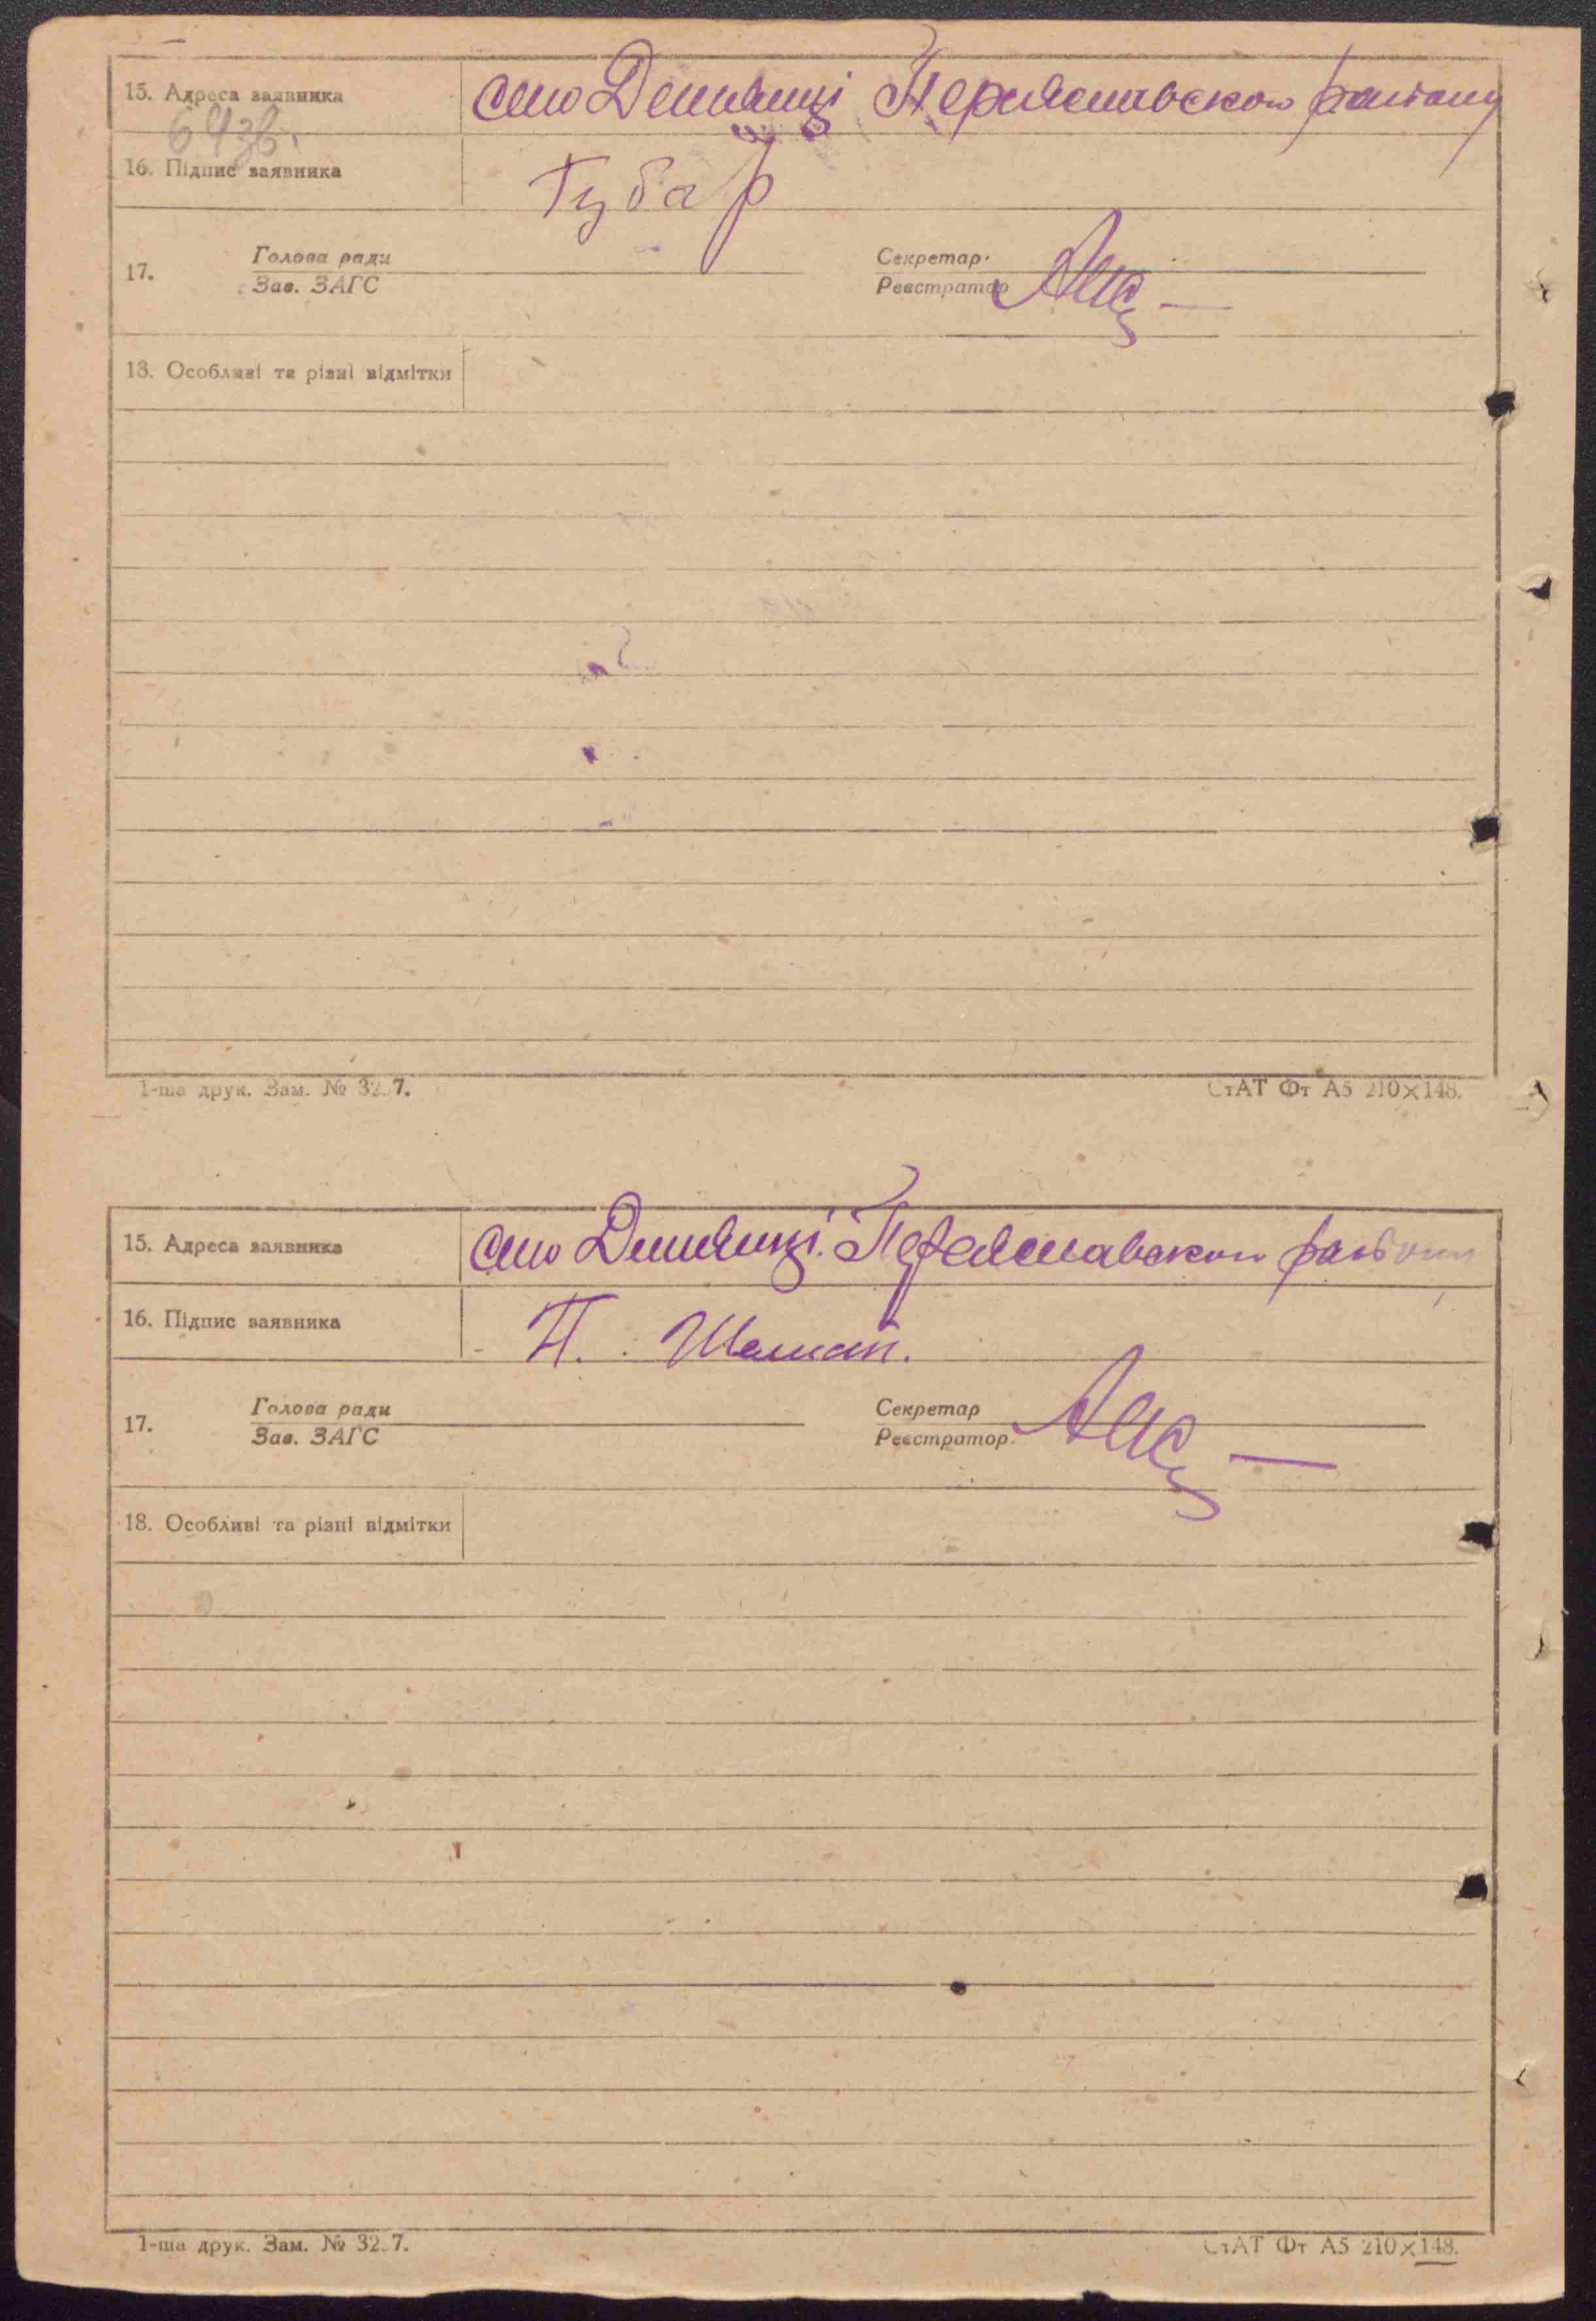 15. Адреса заявника село Демянці Переяславского району
643в.
16. Підпис заявника Губар
17. Голова ради Секретар
Зав. ЗАГС Реєстратор
18. Особливі та різні відмітки
1-ша друк. Зам. № 32.7. СтАТ Фт А5 210×148.
15. Адреса заявника село Демянці Переяславского району
16. Підпис заявника П. Шемшт.
17. Голова ради Секретар
Зав. ЗАГС Реєстратор
18. Особливі та різні відмітки
1-ша друк. Зам. № 32.7. СтАТ Фт А5 210×148.